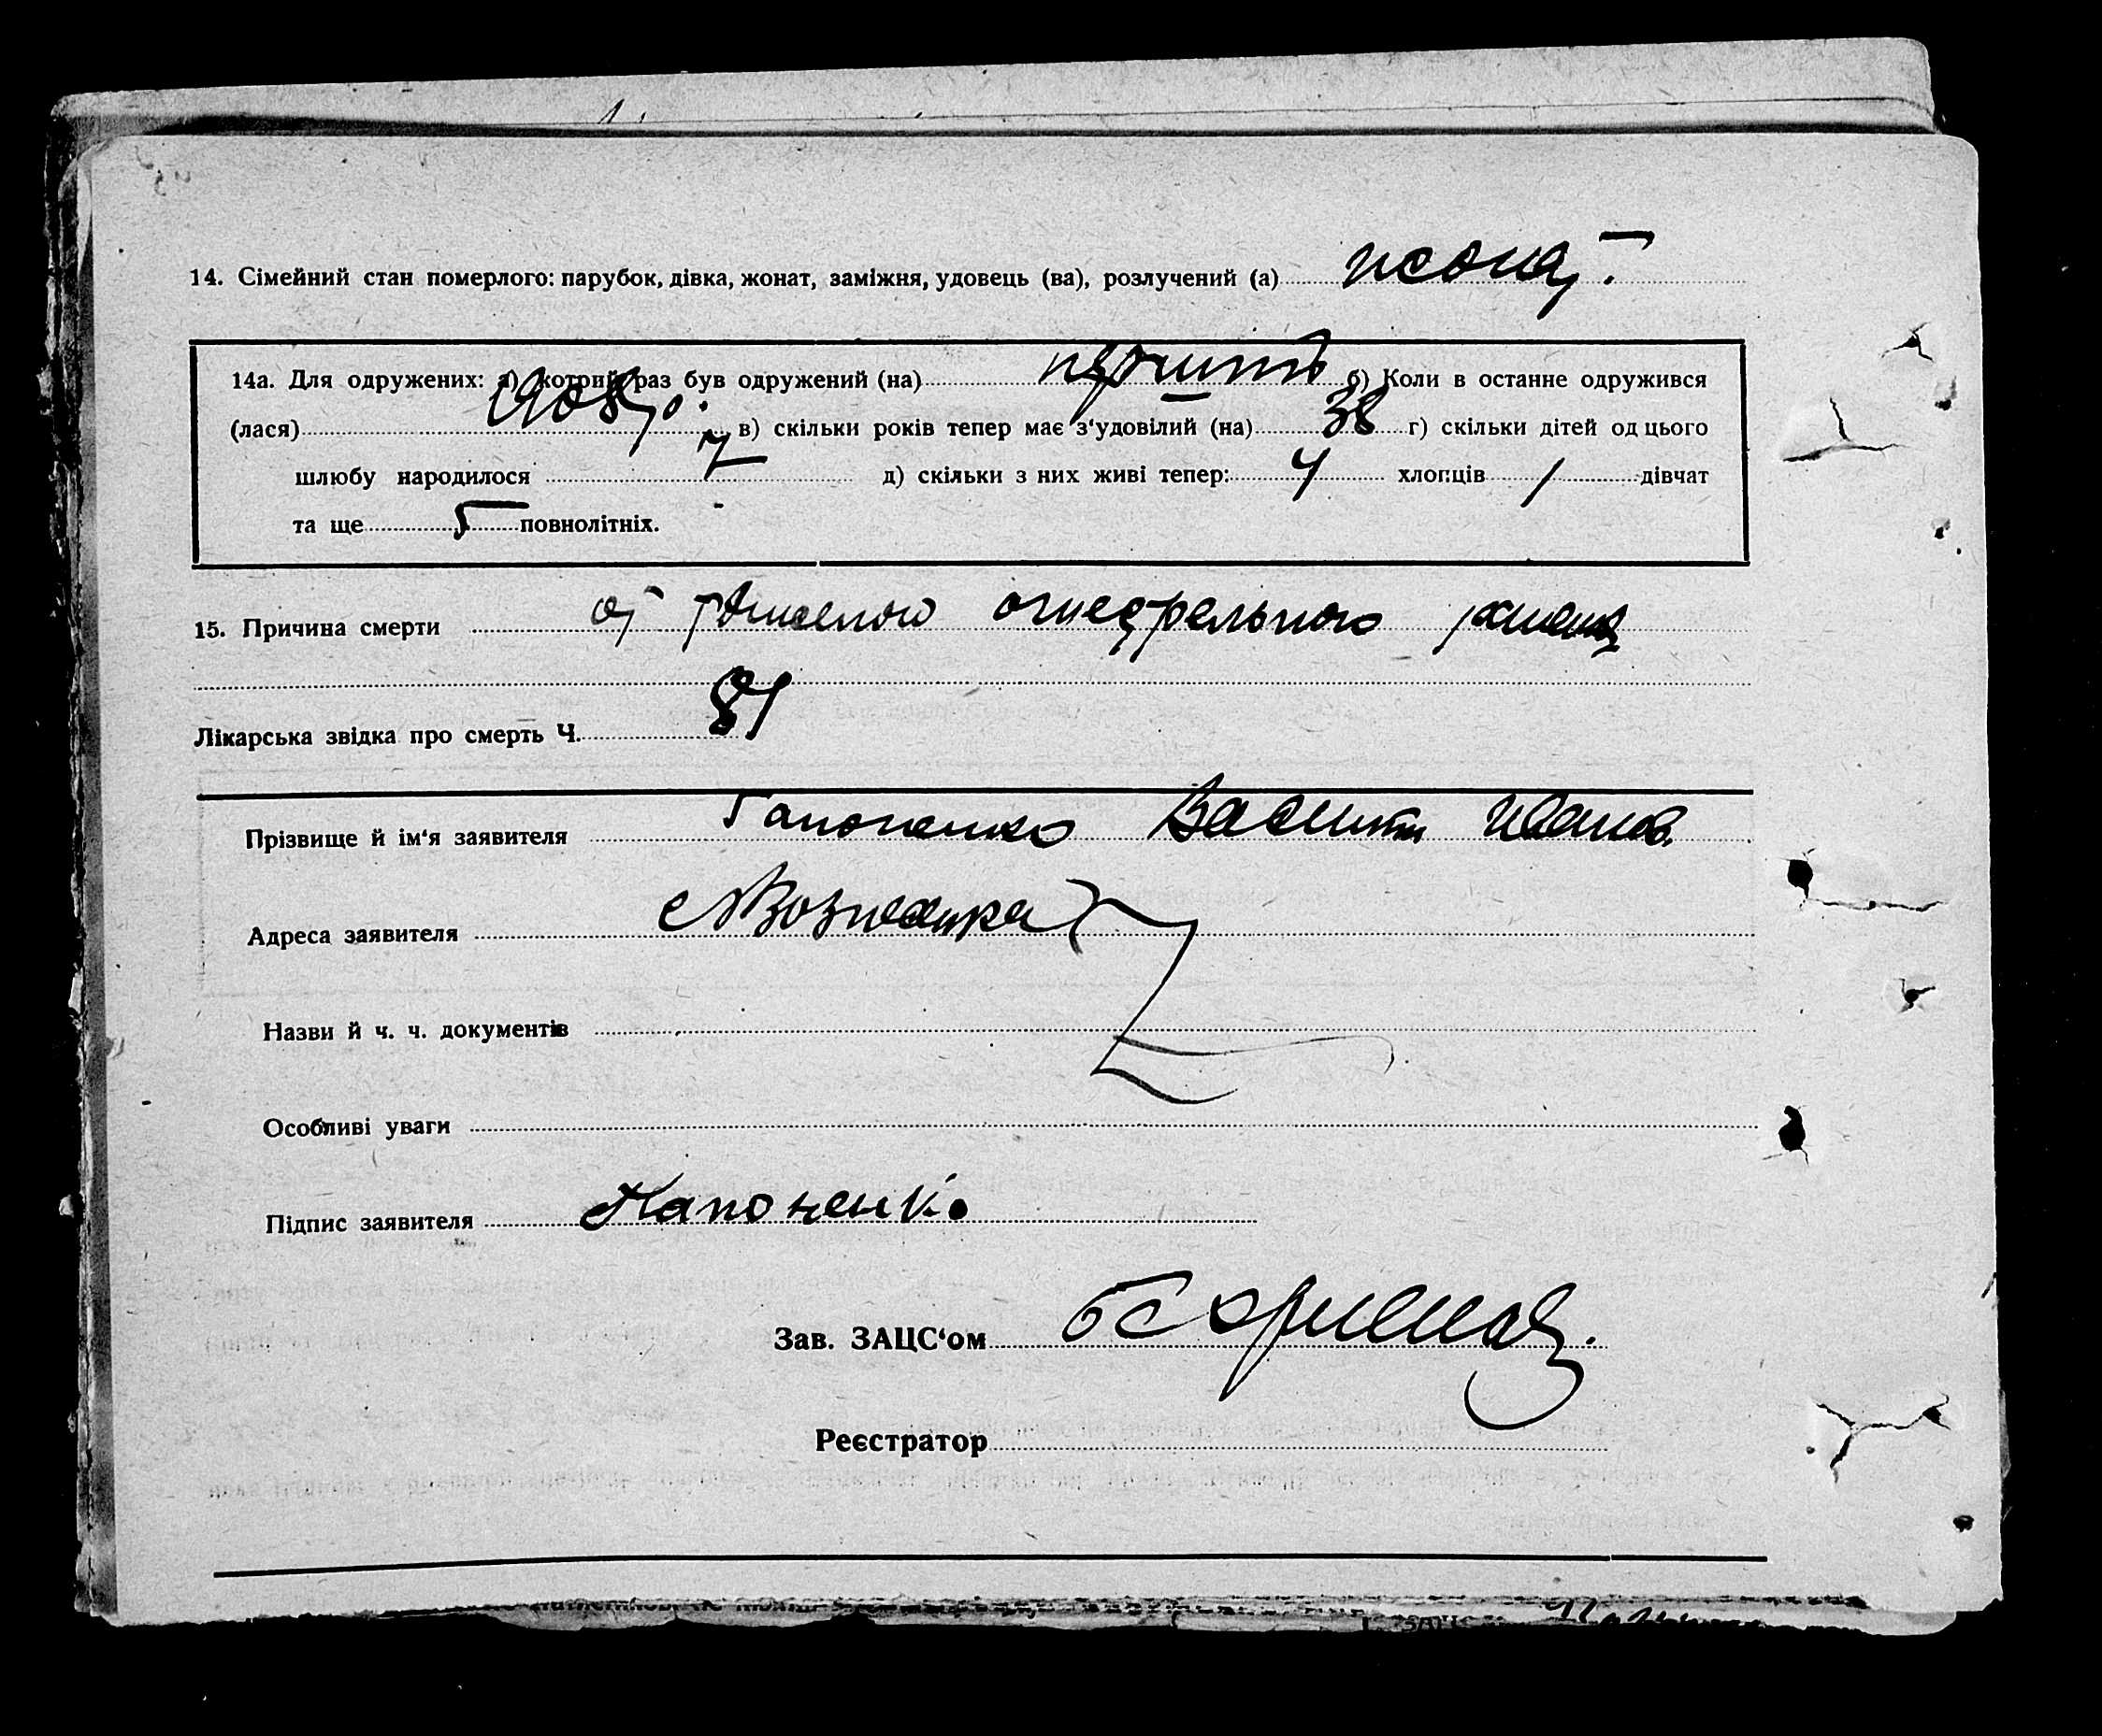 14. Сімейний стан померлого: парубок, дівка, жонат, заміжня, удовець (ва), розлучений (а) жонат.
14а. Для одружених: а) котрий раз був одружений (на) б) Коли в останне одружився
(лася) 1908 р. в) скільки років тепер має з‘удовілий (на) 38 г) скільки дітей од цього
шлюбу народилося 7 д) скільки з них живі тепер: 4 хлопців 1 дівчат
та ще 5 повнолітніх.
15. Причина смерти от огнестрельного
Лікарська звідка про смерть Ч. 81
Прізвище й ім‘я заявителя Гапоненко Иванов.
Адреса заявителя
Назви й ч. ч. документів
Особливі уваги
Підпис заявителя Гапоненко
Зав. ЗАЦС‘ом
Реєстратор